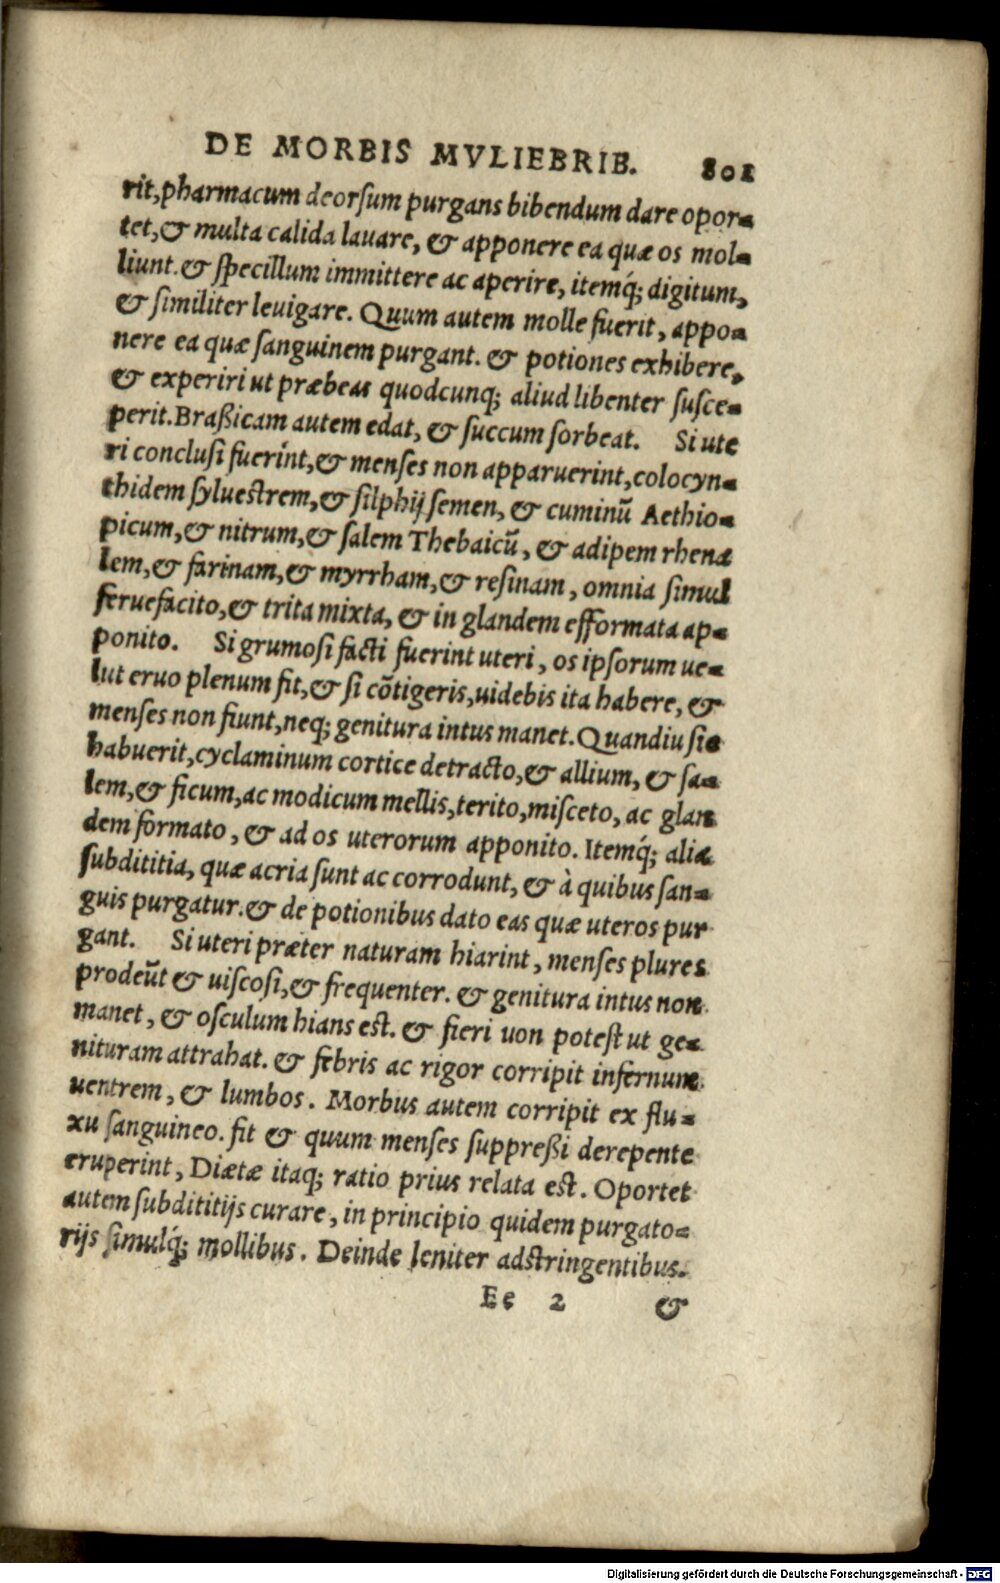 DE MORBIS MVLIEBRIB. 801
rit, pharmacum deorſum purgans bibendum dare opor-
tet, & multa calida lauare, & apponere ea quæ os mol-
liunt. & ſpecillum immittere ac aperire, itemq́; digitum,
& ſimiliter leuigare. Quum autem molle fuerit, appo-
nere ea quæ ſanguinem purgant. & potiones exhibere,
& experiri ut præbeas quodcunq; aliud libenter ſuſce-
perit. Braßicam autem edat, & ſuccum ſorbeat. Si ute
ri concluſi fuerint, & menſes non apparuerint, colocyn-
thidem ſylueſtrem, & ſilphij ſemen, & cuminũ Aethio-
picum, & nitrum, & ſalem Thebaicũ, & adipem rhena
lem, & farinam, & myrrham, & reſinam, omnia ſimul
feruefacito, & trita mixta, & in glandem efformata ap-
ponito. Si grumoſi facti fuerint uteri, os ipſorum ue-
lut eruo plenum fit, & ſi cõtigeris, uidebis ita habere, &
menſes non fiunt, neq; genitura intus manet. Quandiu ſic
habuerit, cyclaminum cortice detracto, & allium, & ſa-
lem, & ficum, ac modicum mellis, terito, miſceto, ac glan
dem formato, & ad os uterorum apponito. Itemq́; alia
ſubdititia, quæ acria ſunt ac corrodunt, & à quibus ſan-
guis purgatur. & de potionibus dato eas quæ uteros pur
gant. Si uteri præter naturam hiarint, menſes plures
prodeũt & uiſcoſi, & frequenter. & genitura intus non
manet, & oſculum hians est. & fieri uon poteſt ut ge-
nituram attrahat. & febris ac rigor corripit infernum
uentrem, & lumbos. Morbus autem corripit ex flu-
xu ſanguineo. fit & quum menſes ſuppreßi derepente
eruperint, Diætæ itaq; ratio prius relata est. Oportet
autem ſubdititijs curare, in principio quidem purgato-
rijs ſimulq́; mollibus. Deinde leniter adstringentibus.
Ee 2 &
Digitalisierung gefördert durch die Deutsche Forschungsgemeinschaft - DFG